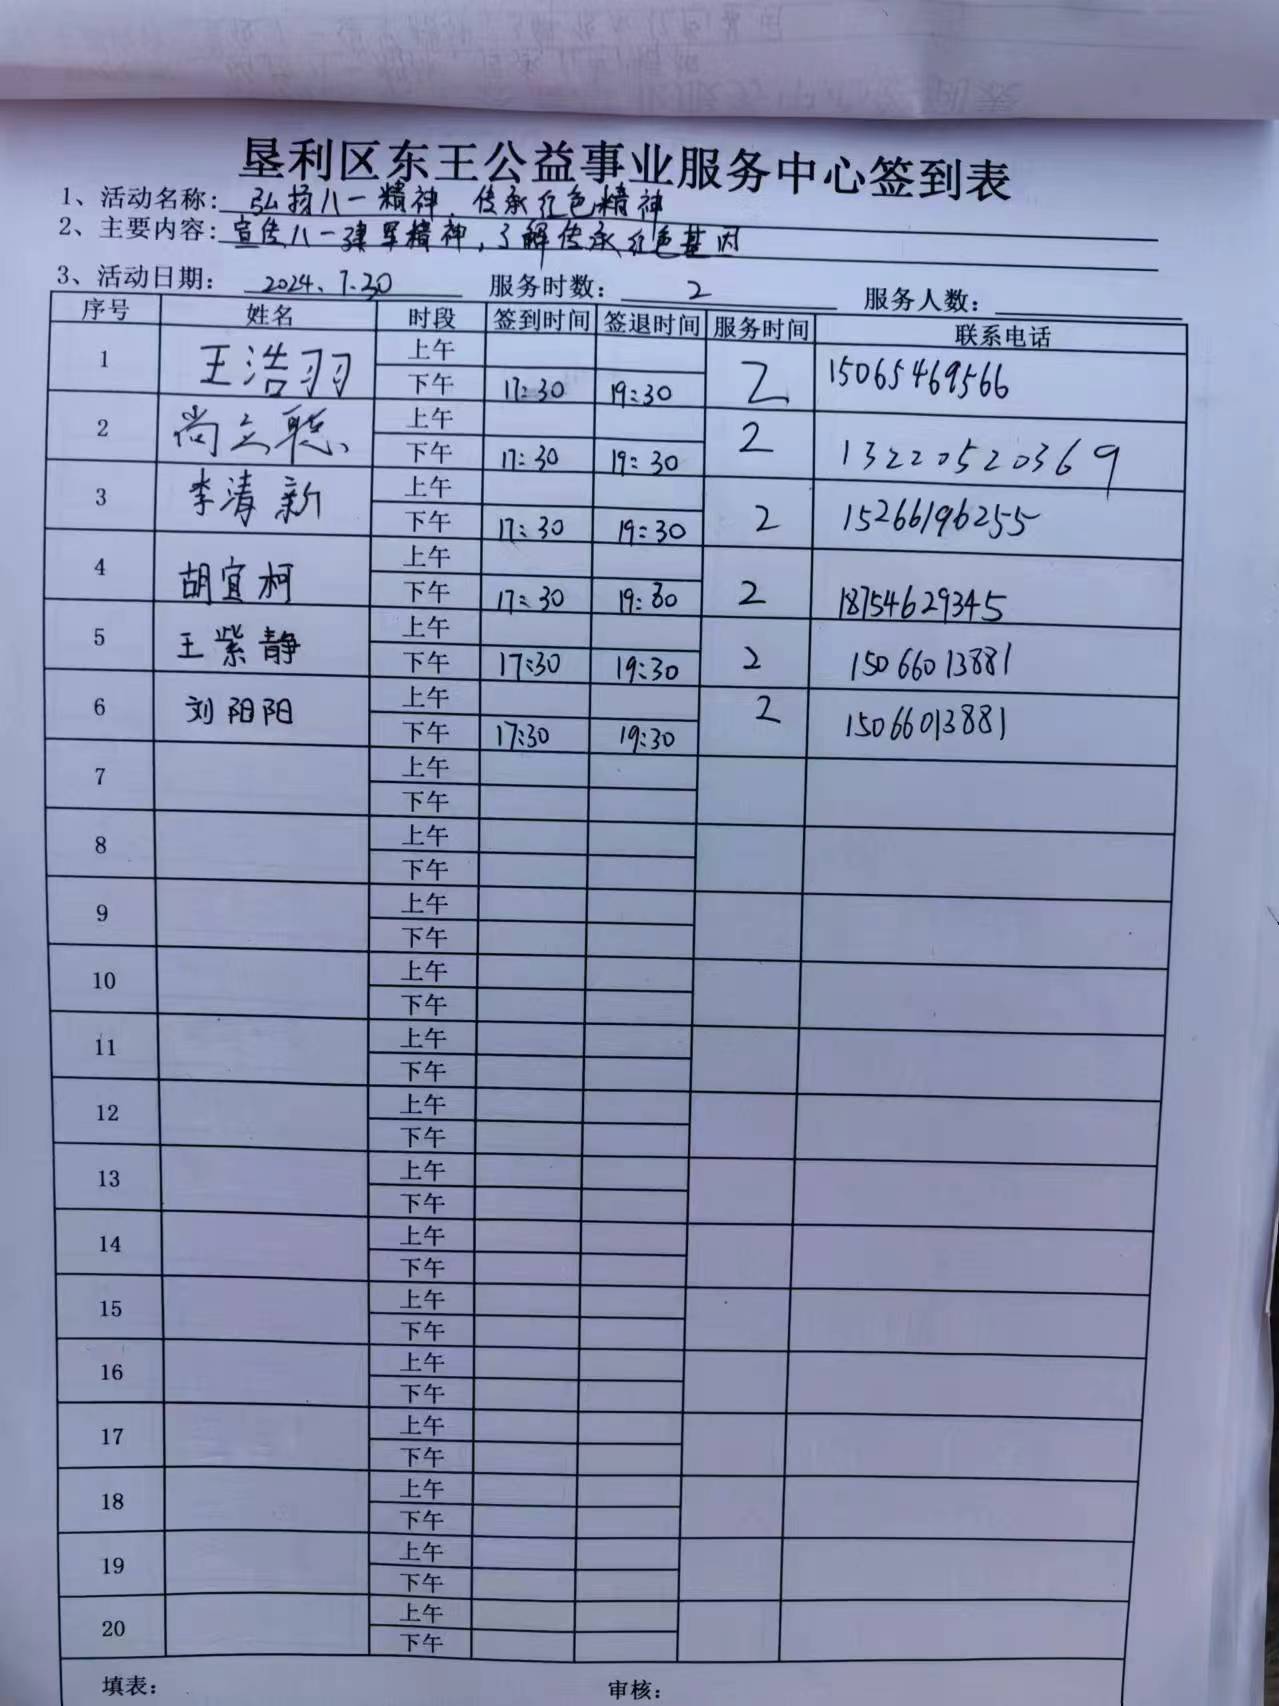 垦利区东王公益事业服务中心签到表
1、活动名称: 弘扬八一精神、传承红色精神
2、主要内容: 宣传八一建军精神,了解传承红色基因
3、活动日期: 2024、7.30 服务时数: 2 服务人数:
序号 姓名 时段 签到时间 签退时间 服务时间 联系电话
1 王浩羽 上午 2 15065469566
下午 17:30 19:30
2 尚立聪 上午 2 13220520369
下午 17:30 19:30
3 李清新 上午 2 15266196255
下午 17:30 19:30
4 胡宜柯 上午 2 18754629345
下午 17:30 19:30
5 王紫静 上午 2 15066013881
下午 17:30 19:30
6 刘阳阳 上午 2 15066013881
下午 17:30 19:30
7 上午
下午
8 上午
下午
9 上午
下午
10 上午
下午
11 上午
下午
12 上午
下午
13 上午
下午
14 上午
下午
15 上午
下午
16 上午
下午
17 上午
下午
18 上午
下午
19 上午
下午
20 上午
下午
填表: 审核: